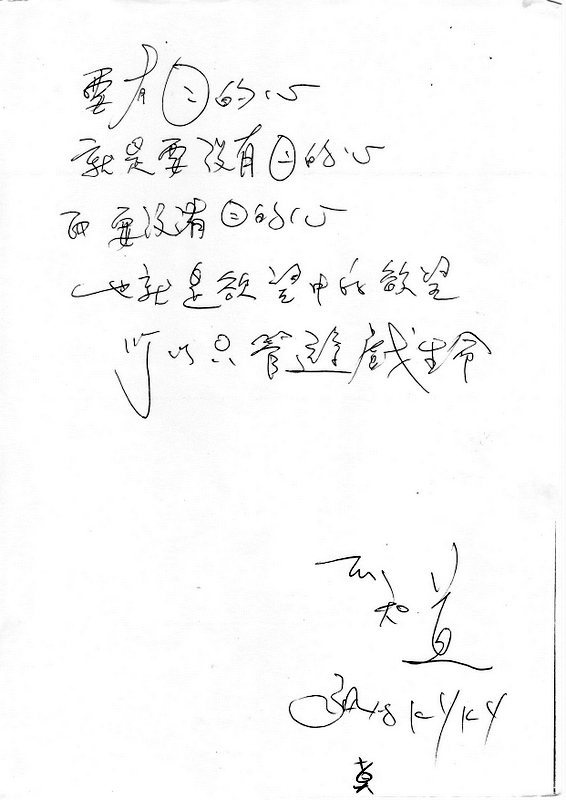 要有目的心
就是要沒有目的心
而要沒有目的心
也就是欲望中的欲望
所以只管遊戲生命
不
知道
真